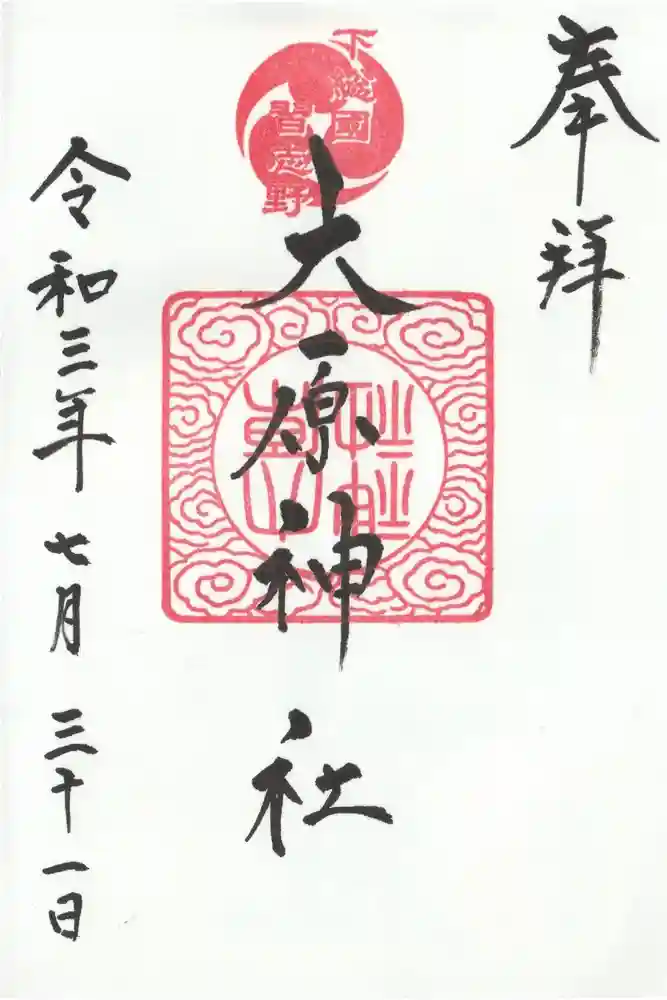 奉拝
下総國
習志野
大原神社
令和三年 七月 三十一日